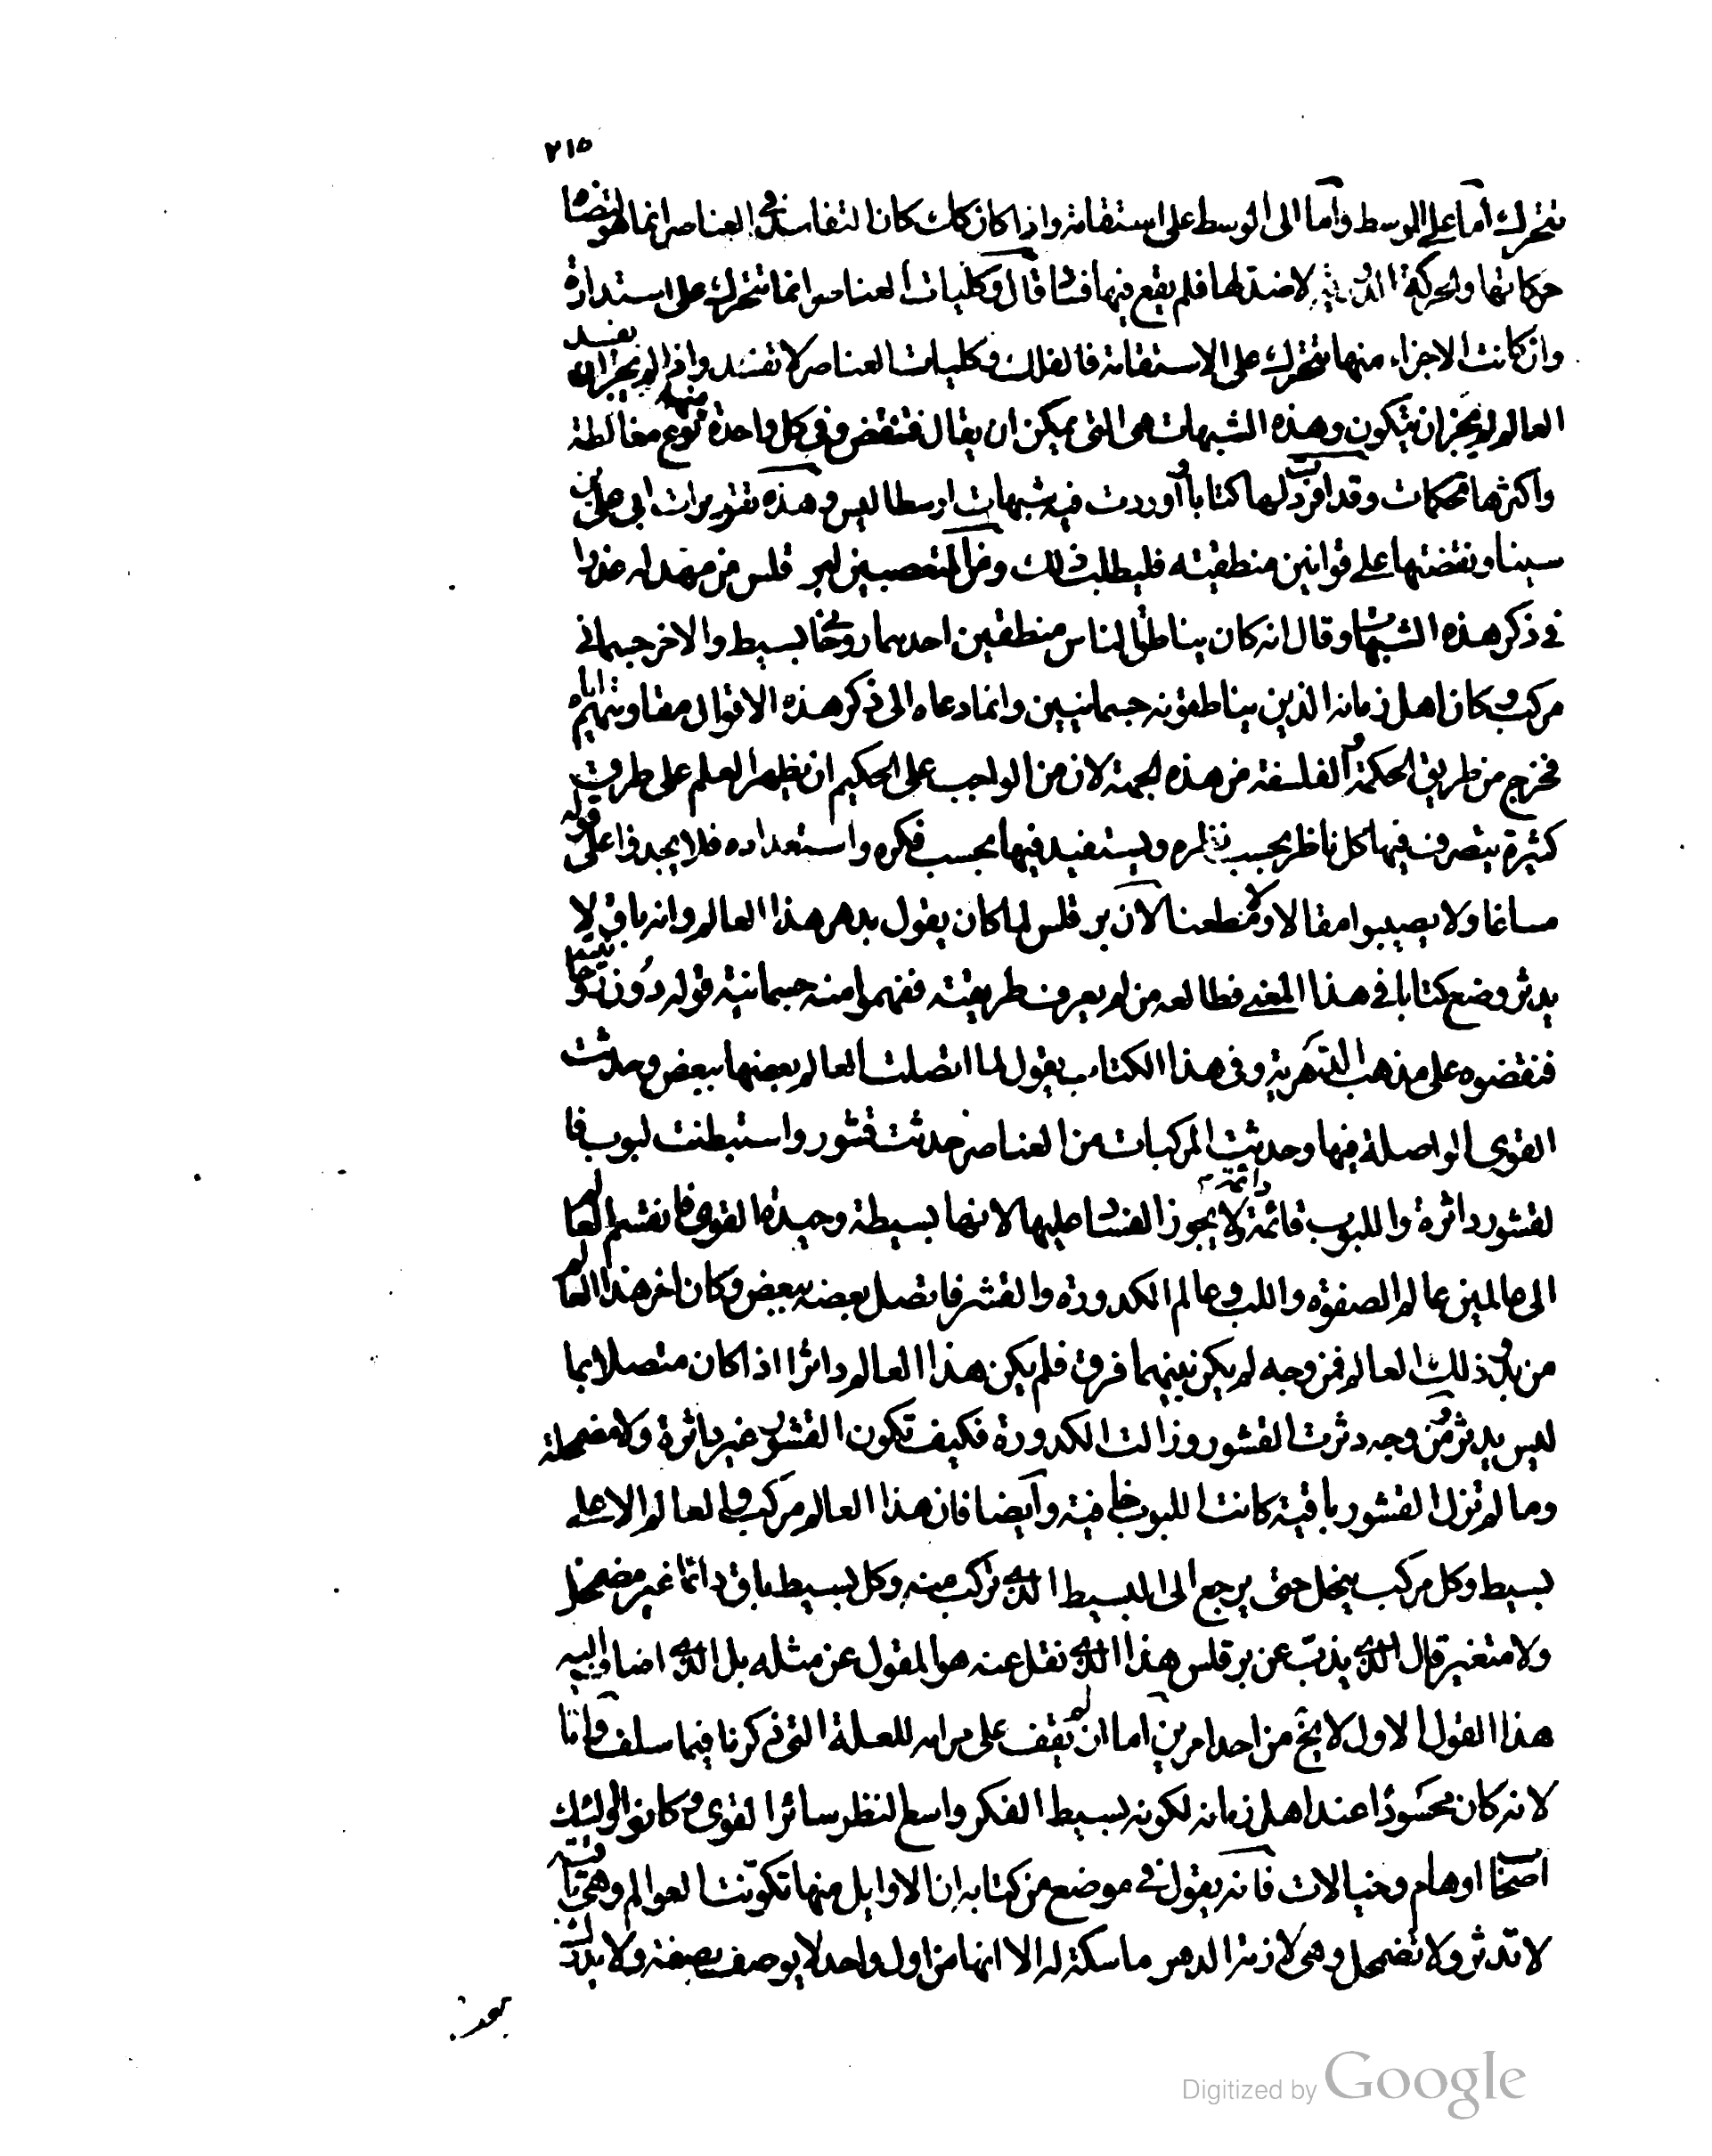 ٢١٥
تتحرك اما على الوسط واما الى الوسط على استقامة واذا كان كذلك كان التفاسد في العناصر انما هو لتضاد
حركاتها والحركة الدورية لا ضد لها فلم يقع فيها فساد قال وكليات العناصر انما تتحرك على استدارة
وان كانت الاجزاء منها تتحرك على الاستقامة فالفلك وكليات العناصر لا تفسد واذا لم يجز ان يفسد
العالم لم يجز ان يتكون وهذه الشبهات هى التى يمكن ان يقال فتنقض وفى كل واحدة منها نوع مغالطة
واكثرها تحكمات وقد افردت لها كتابا واوردت فيه شبهات ارسطاليس وهذه تقريرات ابى على بن
سينا ونقضتها على قوانين منطقيته فليطلب ذلك ومن المتعصبين لبرقلس من مهد له عذرا
في ذكر هذه الشبهات وقال انه كان يناطق الناس منطقين احدهما روحاني بسيط والاخر جسماني
مركب وكان اهل زمانه الذين يناطقونه جسمانيين وانما دعاه الى ذكر هذه الاقوال مقاومتهم اياه
فخرج من طريق الحكمة والفلسفة من هذه الجهة لان من الواجب على الحكيم ان يظهر العلم على طرق
كثيرة يتصرف فيها كل ناظر بحسب نظره ويستفيد فيها بحسب فكره واستعداده فلا يجدوا على قوله
مساغا ولا يصيبوا مقالا ولا مطعنا لان برقلس لما كان يقول بدهر هذا العالم وانه باق لا
يدثر وضع كتابا في هذا المعنى فطالعه من لم يعرف طريقته ففهموا منه جسمانية قوله دون روحانيته
فنقضوه على مذهب الدهرية وفى هذا الكتاب يقول لما اتصلت العالم بعضها ببعض وحدثت
القوى الواصلة فيها وحدثت المركبات من العناصر حدثت قشور واستبطنت لبوب فا
لقشور داثرة واللبوب قائمة دائمة ولا يجوز الفساد عليها لانها بسيطة وحيدة القوى فانقسم العالم
الى عالمين عالم الصفوة واللب وعالم الكدورة والقشر فاتصل بعضه ببعض وكان اخر هذا العالم
من بدو ذلك العالم فمن وجه لم يكن بينهما فرق فلم يكن هذا العالم داثرا اذا كان متصلا بما
ليس يدثر ومن وجه دثرت القشور وزالت الكدورة فكيف تكون القشور غير داثرة ولا مضمحلة
وما لم تزل القشور باقية كانت اللبوب خافية وايضا فان هذا العالم مركب والعالم الاعلى
بسيط وكل مركب ينحل حتى يرجع الى البسيط الذي تركب منه وكل بسيط باق دائما غير مضمحل
ولا متغير قال الذي يذب عن برقلس هذا الذي نقل عنه هو المقول عن مثله بل الذي اضاف اليه
هذا القول الاول لا يخ من احد امرين اما ان لم يقف على مرامه للعلة التى ذكرنا فيما سلف واما
لانه كان محسودا عند اهل زمانه لكونه بسيط الفكر واسع النظر سائر القوى وكانوا اولئك
اصحاب اوهام وخيالات فانه يقول في موضع من كتابه ان الاوايل منها تكونت العوالم وهى باقية
لا تدثر ولا تضمحل وهى لازمة الدهر ماسكة له الا انها من اول واحد لا يوصف بصفة ولا يدرك